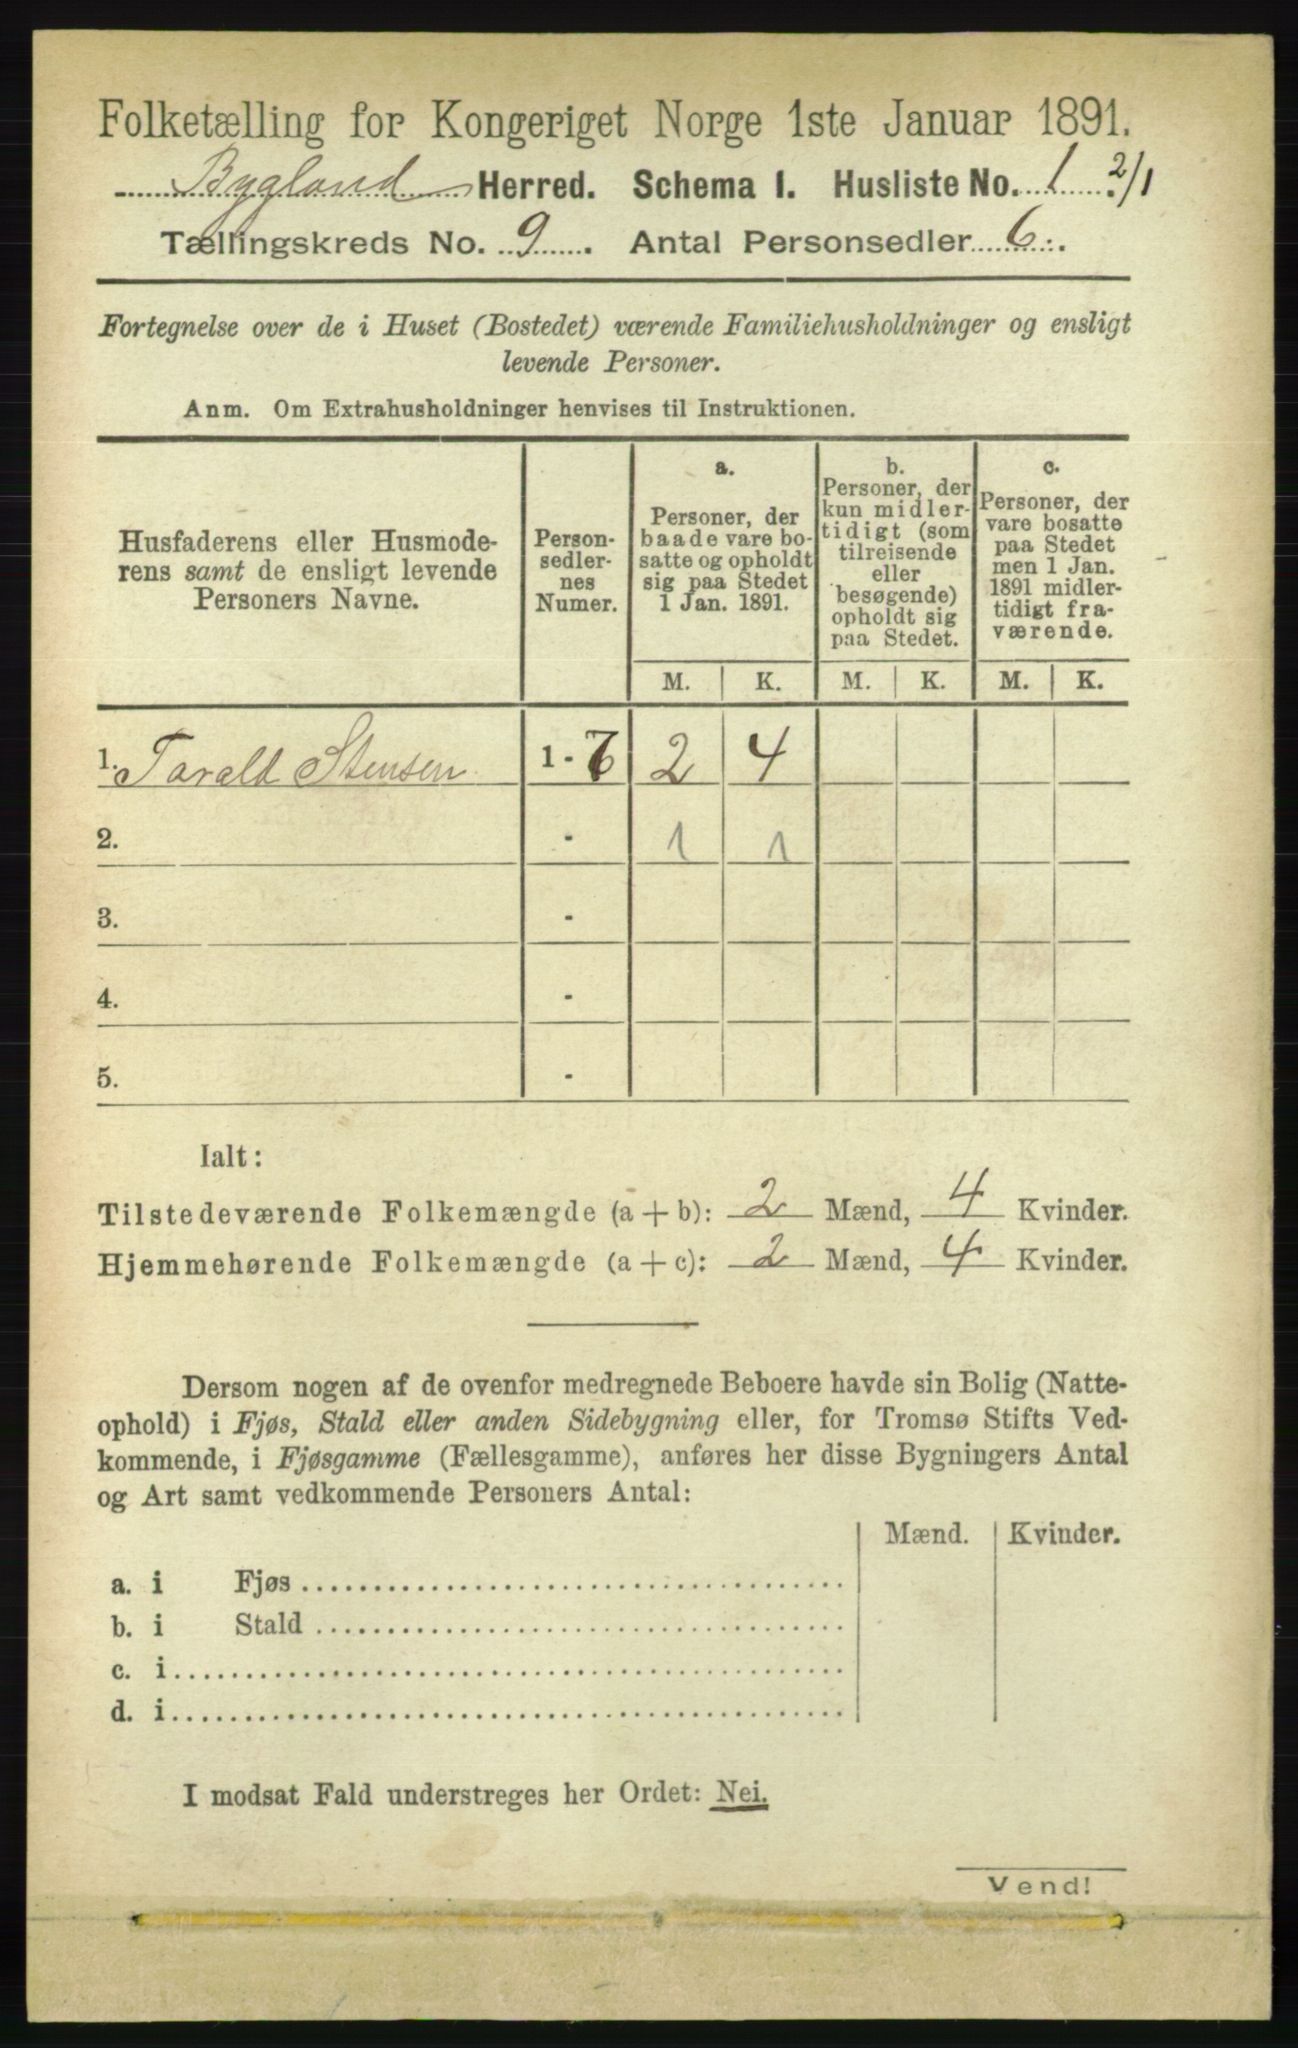 Folketælling for Kongeriget Norge 1ste Januar 1891.
Bygland Herred. Schema 1. Husliste No. 1 2/1
Tællingskreds No. 9. Antal Personsedler 6.
Fortegnelse over de i Huset (Bostedet) værende Familiehusholdninger og ensligt
levende Personer.
Anm. Om Extrahusholdninger henvises til Instruktionen.
Husfaderens eller Husmode-
rens samt de ensligt levende
Personers Navne.
Person-
sedler-
nes
Numer.
a.
Personer, der
baade vare bo-
satte og opholdt
sig paa Stedet
1 Jan. 1891.
b.
Personer, der
kun midler-
tidigt (som
tilreisende
eller
besøgende)
opholdt sig
paa Stedet.
c.
Personer, der
vare bosatte
paa Stedet
men 1 Jan.
1891 midler-
tidigt fra-
værende.
M. K. M. K. M. K.
1. Tarald Stensen 1 - 6 2 4
2. - 1 1
3. -
4. -
5. -
Ialt:
Tilstedeværende Folkemængde (a + b): 2 Mænd, 4 Kvinder.
Hjemmehørende Folkemængde (a + c): 2 Mænd, 4 Kvinder.
Dersom nogen af de ovenfor medregnede Beboere havde sin Bolig (Natte-
ophold) i Fjøs, Stald eller anden Sidebygning eller, for Tromsø Stifts Ved-
kommende, i Fjøsgamme (Fællesgamme), anføres her disse Bygningers Antal
og Art samt vedkommende Personers Antal:
Mænd. Kvinder.
a. i Fjøs
b. i Stald
c. i
d. i
I modsat Fald understreges her Ordet: Nei.
Vend!